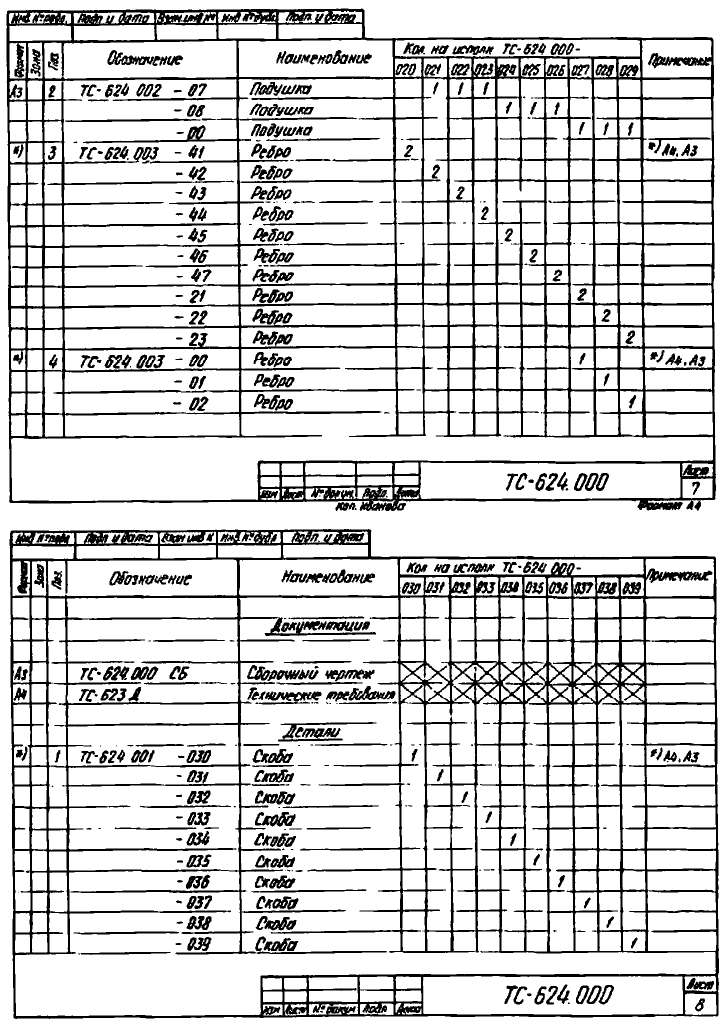 Инв. № подл. Подп. и дата Взам. инв. № Инв. № дубл. Подп. и дата
Формат Зона Поз. Обозначение Наименование Кол. на исполн. ТС-624.000- Примечание
020 021 022 023 024 025 026 027 028 029
А3 2 ТС-624.002 - 07 Подушка 1 1 1
- 08 Подушка 1 1 1
- 00 Подушка 1 1 1
*) 3 ТС-624.003 - 41 Ребро 2 *) А4, А3
- 42 Ребро 2
- 43 Ребро 2
- 44 Ребро 2
- 45 Ребро 2
- 46 Ребро 2
- 47 Ребро 2
- 21 Ребро 2
- 22 Ребро 2
- 23 Ребро 2
*) 4 ТС-624.003 - 00 Ребро 1 *) А4, А3
- 01 Ребро 1
- 02 Ребро 1
Изм Лист № докум. Подп. Дата ТС-624.000 Лист 7
Коп. Иванова Формат А4
Инв. № подл. Подп. и дата Взам. инв. № Инв. № дубл. Подп. и дата
Формат Зона Поз. Обозначение Наименование Кол. на исполн. ТС-624.000- Примечание
030 031 032 033 034 035 036 037 038 039
Документация
А3 ТС-624.000 СБ Сборочный чертеж
А4 ТС-623 Д Технические требования
Детали
*) 1 ТС-624.001 -030 Скоба 1 *) А4, А3
-031 Скоба 1
-032 Скоба 1
-033 Скоба 1
-034 Скоба 1
-035 Скоба 1
-036 Скоба 1
-037 Скоба 1
-038 Скоба 1
-039 Скоба 1
Изм Лист № докум. Подп. Дата ТС-624.000 Лист 8